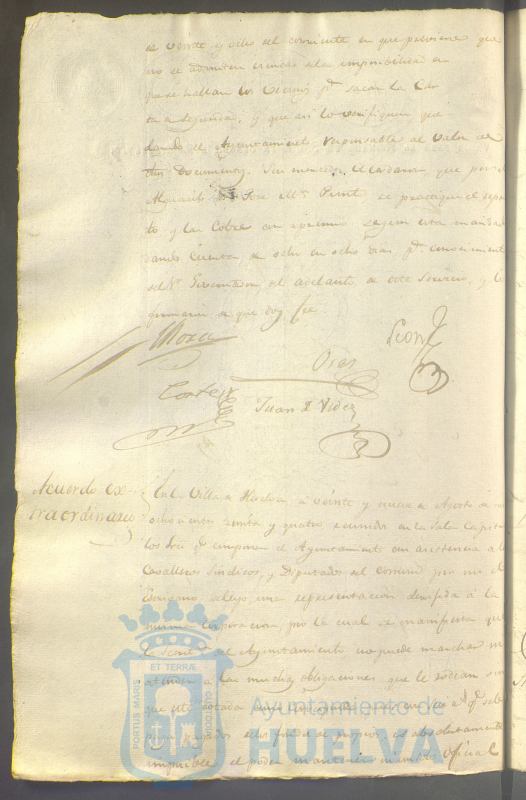 de veinte y ocho del corriente en que previene que
no se admiten escusas de la imposibilidad en
que se hallan los vecinos pª sacar la Car
ta de Seguridad, y que asi lo verifiquen que
dando el Ayuntamiento responsable al valor de
dhos Documentos. Sus mercedes acordaron que por el
Alguacil José Mª Punto se practique el repar
to y la Cobre con apremio segun está mandado
dando Cuenta de ocho en ocho dias pª conocimiento
del Sr Gobernador el adelanto de este Servicio, y lo
firmaron de que doy fee
Mora
Leon
Cortes
Juan
Acuerdo ex-
traordinario
En la Villa de Huelva a veinte y nueve de Agosto de mil
ochocientos treinta y cuatro reunidos en la Sala Capitu
los Sres qe componen el Ayuntamiento con asistencia de los
Caballeros Sindicos, y Diputados del Comun por mi el
Escribano se leyo una representacion dirigida á la
misma Corporacion, por la cual se manifiesta que
el Secret del Ayuntamiento no puede marchar ni
atender a las muchas obligaciones que le rodean sin
que esté dotada
de los fondos de propios es absolutamente
imposible el poder mantener ni un solo Oficial
PORTUS MARIS
ET TERRÆ
CUSTODIA
Ayuntamiento de
HUELVA